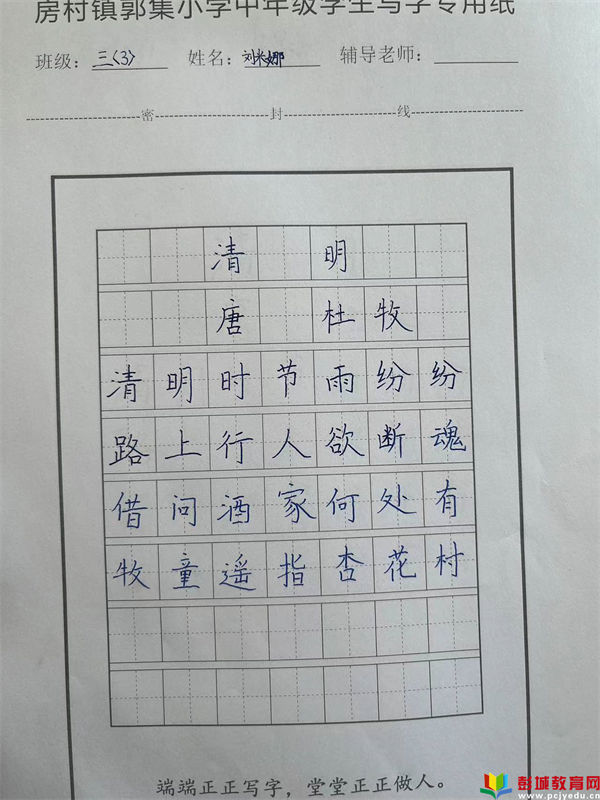 房村镇郭集小学中年级学生写字专用纸
班级：三(3) 姓名：刘米娜 辅导老师：
密 封 线
清 明
唐 杜牧
清明时节雨纷纷
路上行人欲断魂
借问酒家何处有
牧童遥指杏花村
端端正正写字，堂堂正正做人。
彭城教育网
www.pcjyedu.cn